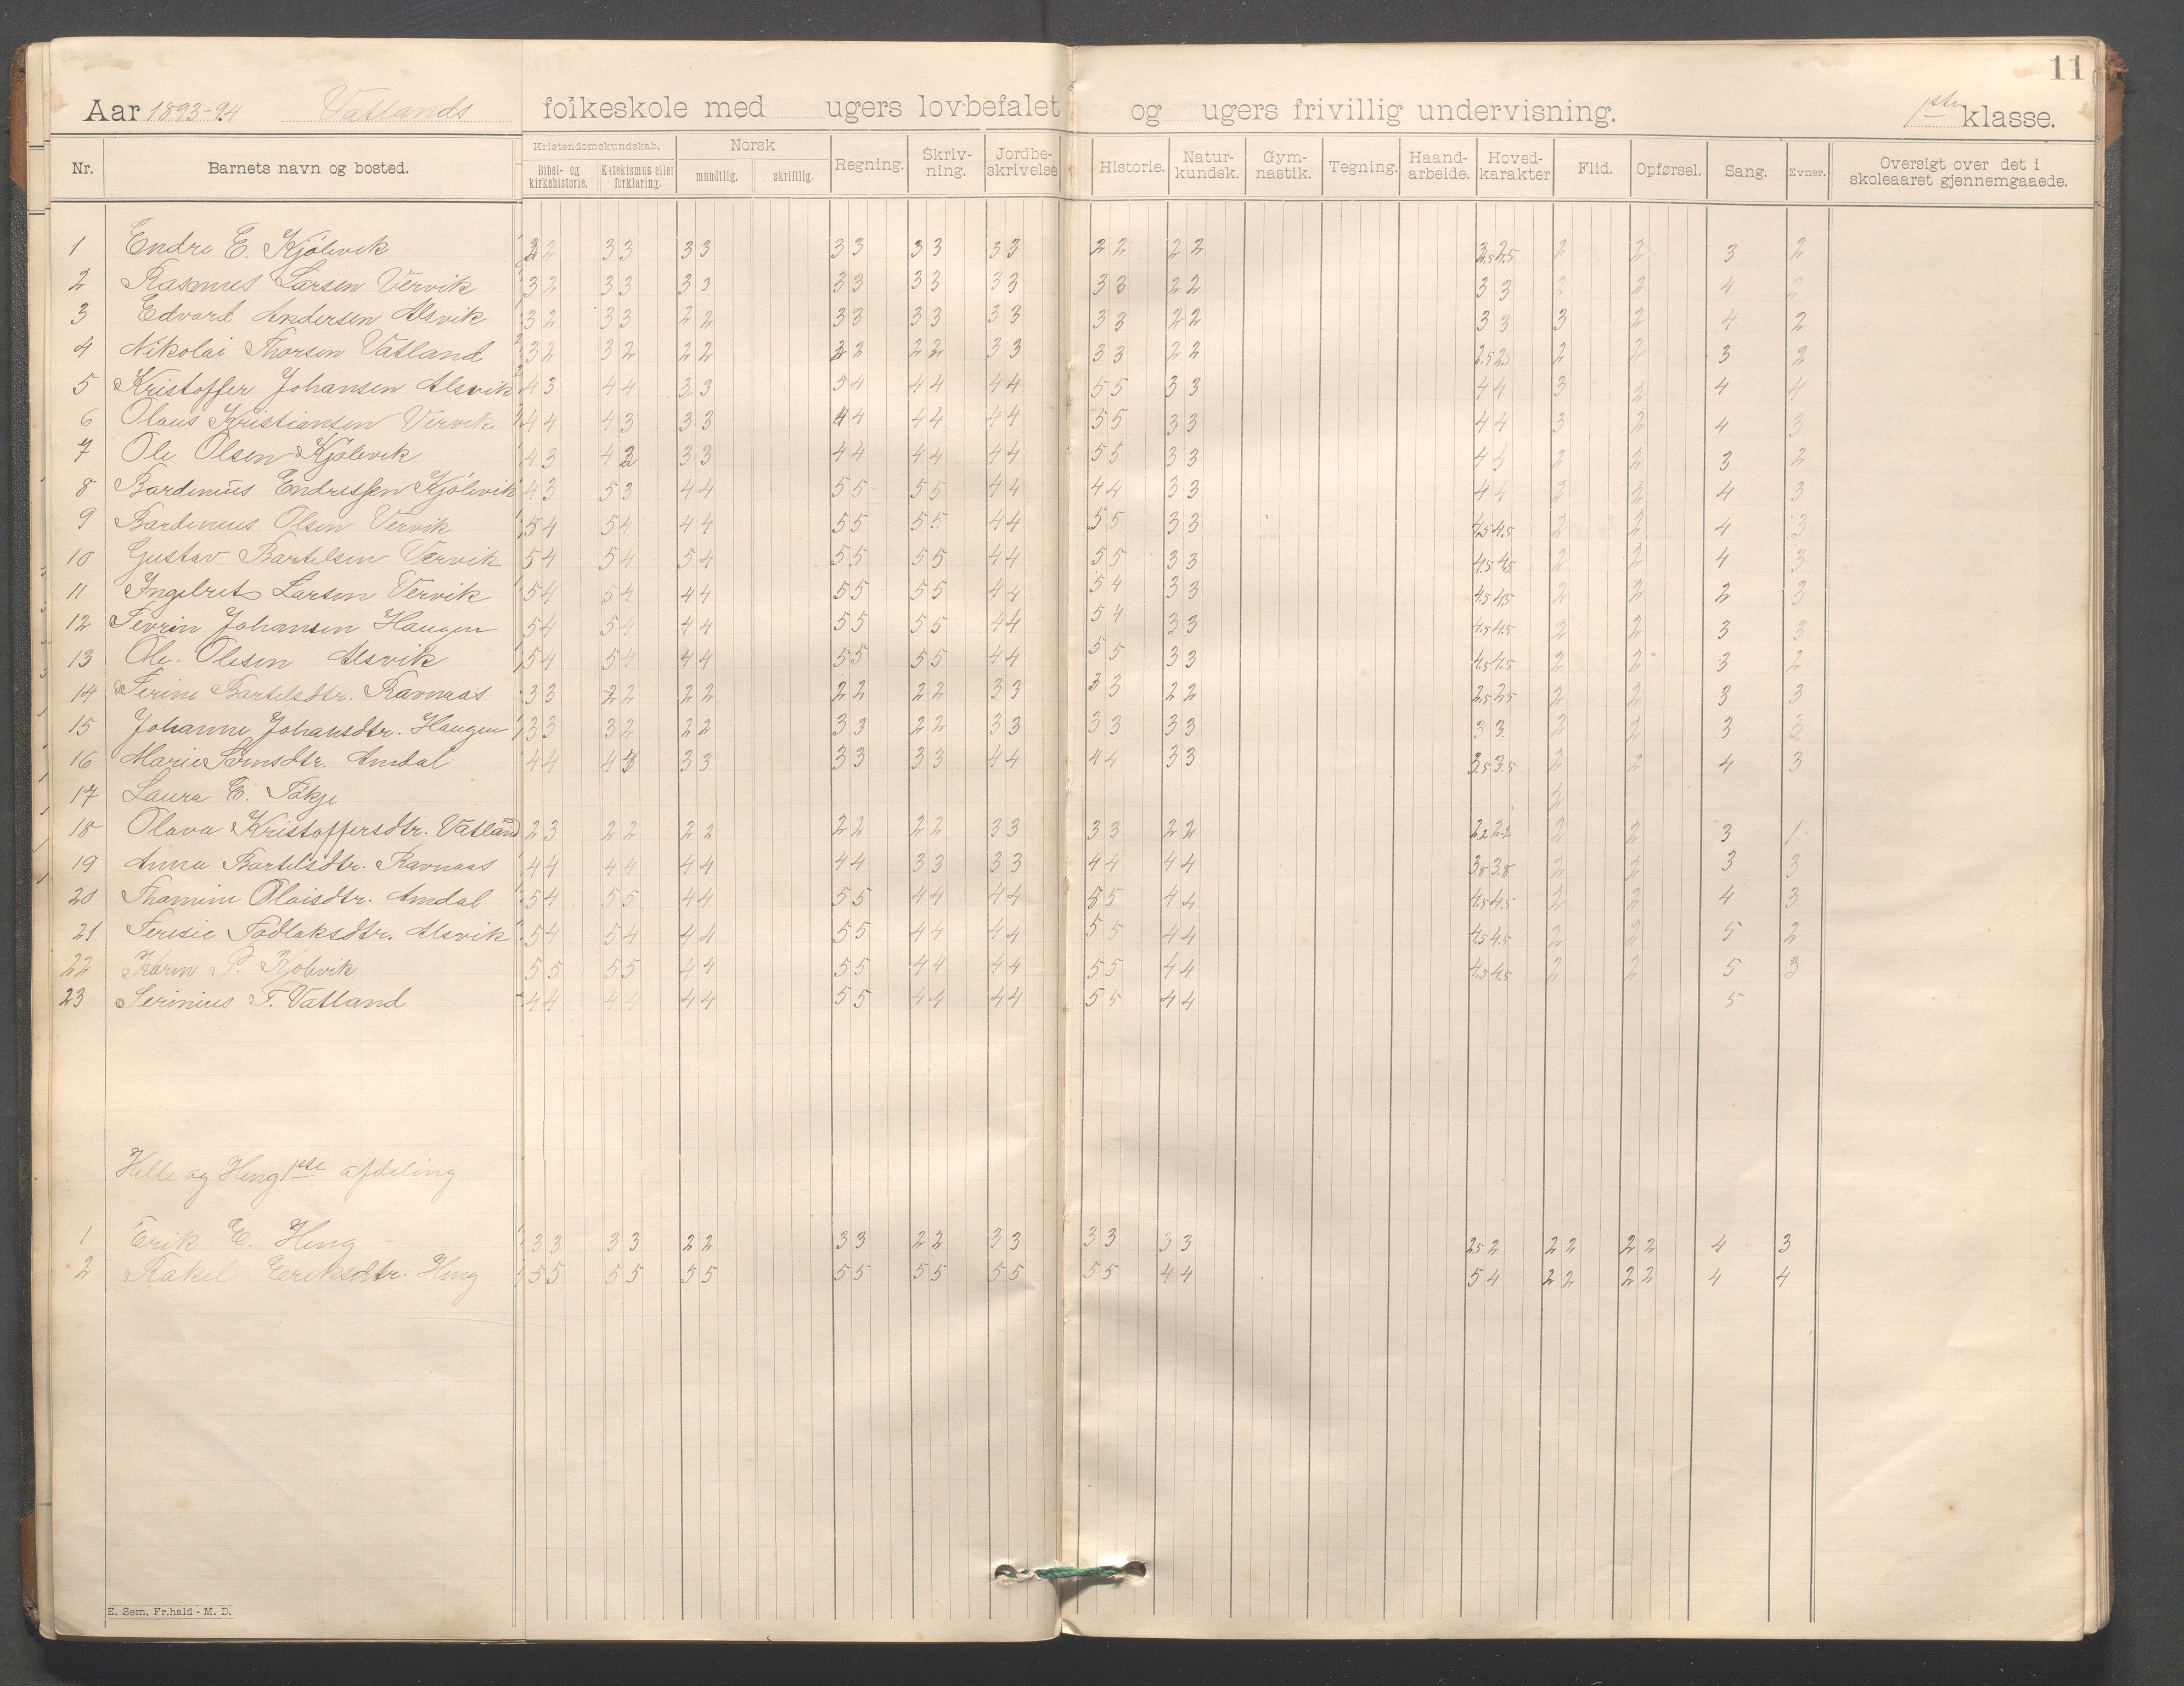 11
Aar 1893-94 Vatlands folkeskole med ugers lovbefalet og ugers frivillig undervisning. 1ste klasse.
Nr. Barnets navn og bosted. Kristendomskundskab. Bibel- og kirkehistorie. Katekismus eller forklaring. Norsk mundtlig. skriftlig. Regning. Skriv-ning. Jordbe-skrivelse Historie. Natur-kundsk. Gym-nastik. Tegning. Haand-arbeide. Hoved-karakter Flid. Opførsel. Sang. Evner. Oversigt over det i skoleaaret gjennemgaaede.
1 Endre E. Kjølevik 2 2 3 3 3 3 3 3 3 3 3 3 2 2 2 2 2.5 2.5 2 2 3 2
2 Rasmus Larsen Vervik 3 2 3 3 3 3 3 3 3 3 3 3 3 3 2 2 3 3 2 2 4 2
3 Edvard Andersen Alsvik 3 2 3 3 2 2 3 3 3 3 3 3 3 3 2 2 3 3 3 2 4 2
4 Nikolai Thorsen Vatland 3 2 3 2 2 2 2 2 2 2 3 3 3 3 2 2 2.5 2.5 2 2 3 2
5 Kristoffer Johansen Alsvik 4 3 4 4 3 3 5 4 4 4 4 4 5 5 3 3 4 4 3 2 4 4
6 Olaus Kristiansen Vervik 4 4 4 3 3 3 4 4 4 4 4 4 5 5 3 3 4 4 3 2 4 3
7 Ole Olsen Kjølevik 4 3 4 3 3 3 4 4 4 4 4 4 5 5 3 3 4 4 2 2 3 2
8 Bardinius Endressen Kjølevik 4 3 5 3 4 4 5 5 5 5 4 4 4 4 3 3 4 4 2 2 4 3
9 Bardinius Olsen Vervik 5 4 5 4 4 4 5 5 5 5 4 4 5 5 3 3 4.5 4.5 2 2 4 3
10 Gustav Bartelsen Vervik 5 4 5 4 5 4 5 5 5 5 4 4 5 5 3 3 4.5 4.5 2 2 4 3
11 Ingebret Larsen Vervik 5 4 5 4 4 4 5 5 5 5 4 4 5 4 3 3 4.5 4.5 2 2 2 3
12 Sevrin Johansen Haugen 5 4 5 4 4 4 5 5 5 5 4 4 5 4 3 3 4.5 4.5 2 2 3 3
13 Ole Olesen Alsvik 5 4 5 4 4 4 5 5 5 5 4 4 5 5 3 3 4.5 4.5 2 2 3 2
14 Serine Bartelsdtr. Ravnaas 3 3 2 2 2 2 2 2 2 2 3 3 3 3 2 2 2.5 2.5 2 2 3 3
15 Johanne Johansdtr. Haugen 3 3 3 2 2 2 3 3 2 2 3 3 3 3 3 3 3 3 2 2 3 3
16 Marie Sornsdtr. Amdal 4 4 4 3 3 3 3 3 3 3 4 4 4 4 3 3 3.5 3.5 2 2 4 3
17 Laura E. Tøkje 2
18 Olava Kristoffersdtr. Vatland 2 3 2 2 2 2 2 2 2 2 3 3 3 3 2 2 2.2 2.2 2 2 3 1
19 Anna Bartelsdtr. Ravnaas 4 4 4 4 4 4 4 4 3 3 3 3 4 4 4 4 3.8 3.8 2 2 3 3
20 Thomine Oloisdtr. Amdal 5 4 5 5 4 4 5 5 4 4 4 4 5 5 4 4 4.5 4.5 2 2 4 3
21 Teresie Tadlaksdtr. Alsvik 5 4 5 4 4 4 5 5 4 4 4 4 5 5 4 4 4.5 4.5 2 2 5 2
22 Karen P. Kjolevik 5 5 5 5 4 4 5 5 4 4 4 4 5 5 4 4 4.5 4.5 2 2 5 3
23 Serinius T. Vatland 4 4 4 4 4 4 5 5 4 4 4 4 5 5 4 4 5
Helle og Heng 1ste afdeling
1 Erik E. Heng 3 3 3 3 2 2 3 3 2 2 3 3 3 3 3 3 2.5 2 2 2 2 2 4 3
2 Rakel Eeriksdtr. Heng 5 5 5 5 5 5 5 5 5 5 5 5 5 5 4 4 5 4 2 2 2 2 4 4
E. Sem. Fr.hald - M. D.